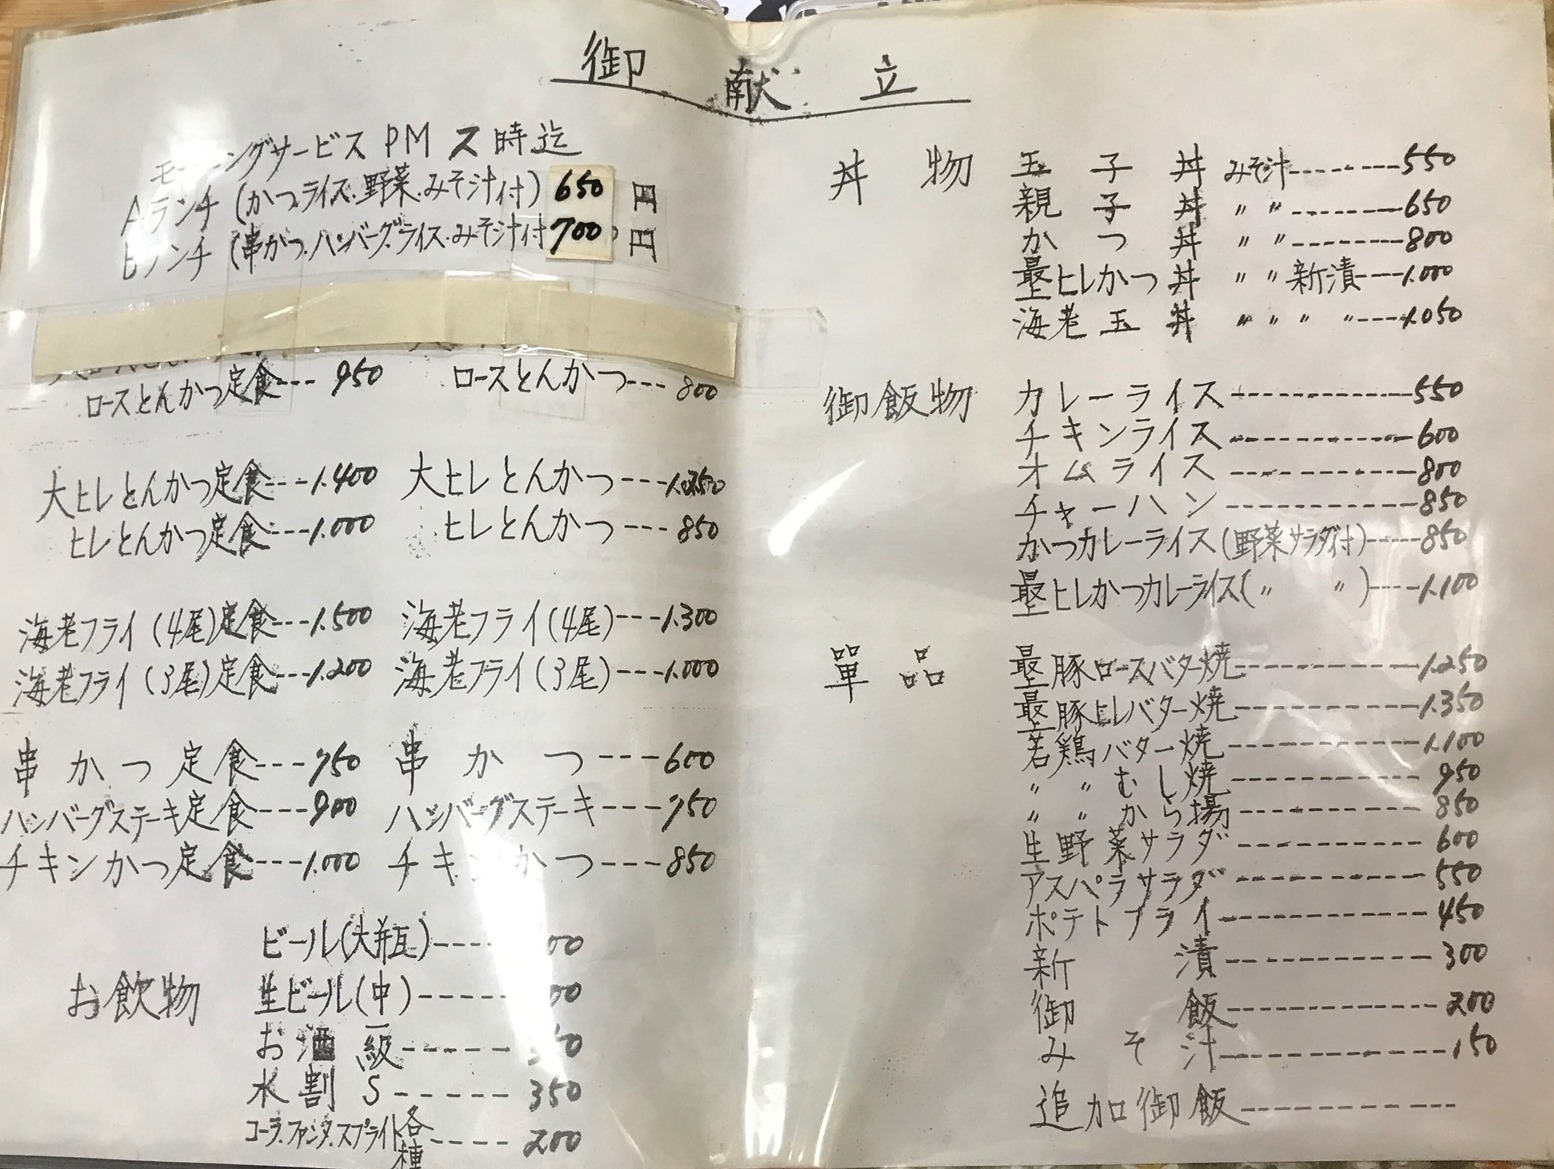 御献立
モーニングサービス PM ス時迄
Aランチ (かつ.ライス.野菜.みそ汁付) 650 円
Bランチ (串かつ.ハンバーグ.ライス.みそ汁付 700 円
ロースとんかつ定食---950 ロースとんかつ---800
大ヒレとんかつ定食---1.400 大ヒレとんかつ---
ヒレとんかつ定食---1.000 ヒレとんかつ---850
海老フライ(4尾)定食---1.500 海老フライ(4尾)---1.300
海老フライ(3尾)定食---1.200 海老フライ(3尾)---1.000
串かつ定食---750 串かつ---600
ハンバーグステーキ定食---900 ハンバーグステーキ---750
チキンかつ定食---1.000 チキンかつ---850
お飲物
ビール(大瓶)----
生ビール(中)-----
お酒一級-----
水割S-----350
コーラ.ファンタ.スプライト各種----200
丼物
玉子丼 みそ汁-------550
親子丼 〃 〃-------650
かつ丼 〃 〃-------800
最上ヒレかつ丼 〃 〃 新漬---1.000
海老玉丼 〃 〃 〃 〃---1.050
御飯物
カレーライス----------550
チキンライス----------600
オムライス----------800
チャーハン----------850
かつカレーライス(野菜サラダ付)----850
最上ヒレかつカレーライス(〃 〃)---1.100
單品
最上豚ロースバター焼----------1.250
最上豚ヒレバター焼----------1.350
若鶏バター焼----------1.100
〃 〃 むし焼----------950
〃 〃 から揚----------850
生野菜サラダ----------600
アスパラサラダ----------550
ポテトフライ----------450
新漬----------300
御飯----------200
みそ汁----------150
追加御飯----------